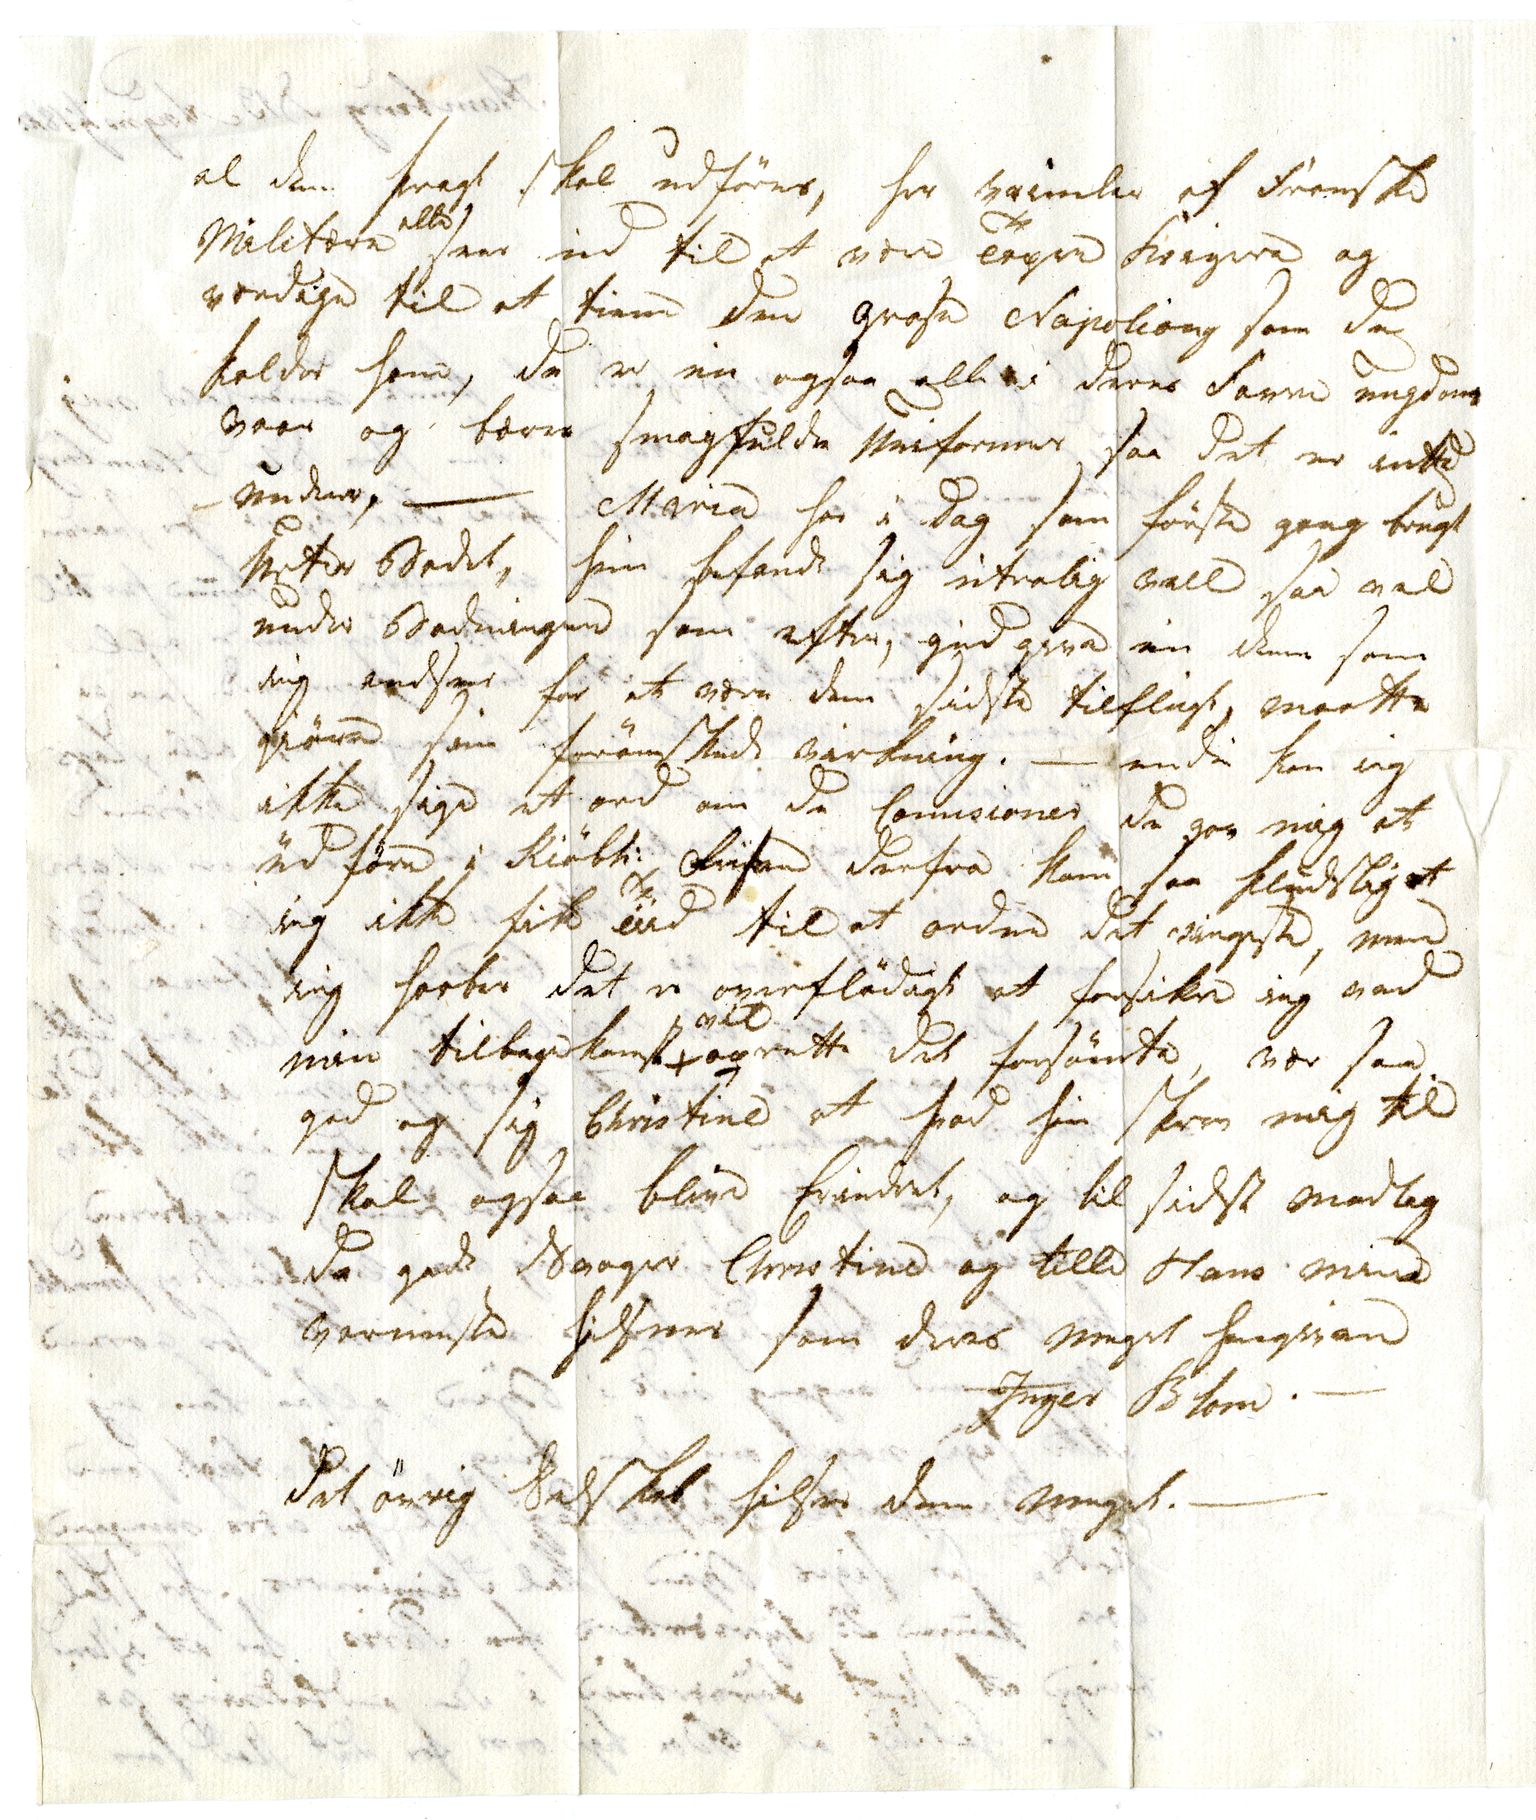 al den pragt skal udföres, her vrimler af Franske
Militære alle seer ud til at være Tapre Krigere og
værdige til at tiene den grose Napoliong som de
kalder ham, de er en ogsaa alle i deres Favre ungdoms
vaar og bærer smagfulde Uniformer saa det er intet
under, — Maria har i Dag som förste gang brugt
Badet, hun befandt sig utrolig vell saa vel
under Badningen som efter, gud give en dem som
ieg andseer for at være dem sidste tilflugt, maatte
giöre sin forönskede virkning. — endu kan ieg
ikke sige et ord om de Comisioner de gav mig at
udföre i Kiöbh: Reisen derfra kom saa pludslig at
ieg ikke fik Tiid til at ordne det ringeste, men
ieg haaber det er overflödigt at forsikre ieg ved
min tilbagekomst vil oprette det forsömte, vær saa
god og sig Christine at hvad hun skrev mig til
skal ogsaa blive Erindret, og til sidst modtag
de gode Svoger Christine og lille Hans mine
varmeste hilsener som deres meget hengivne
Inger Blom. —
det övrig Selskab hilser dem meget. —